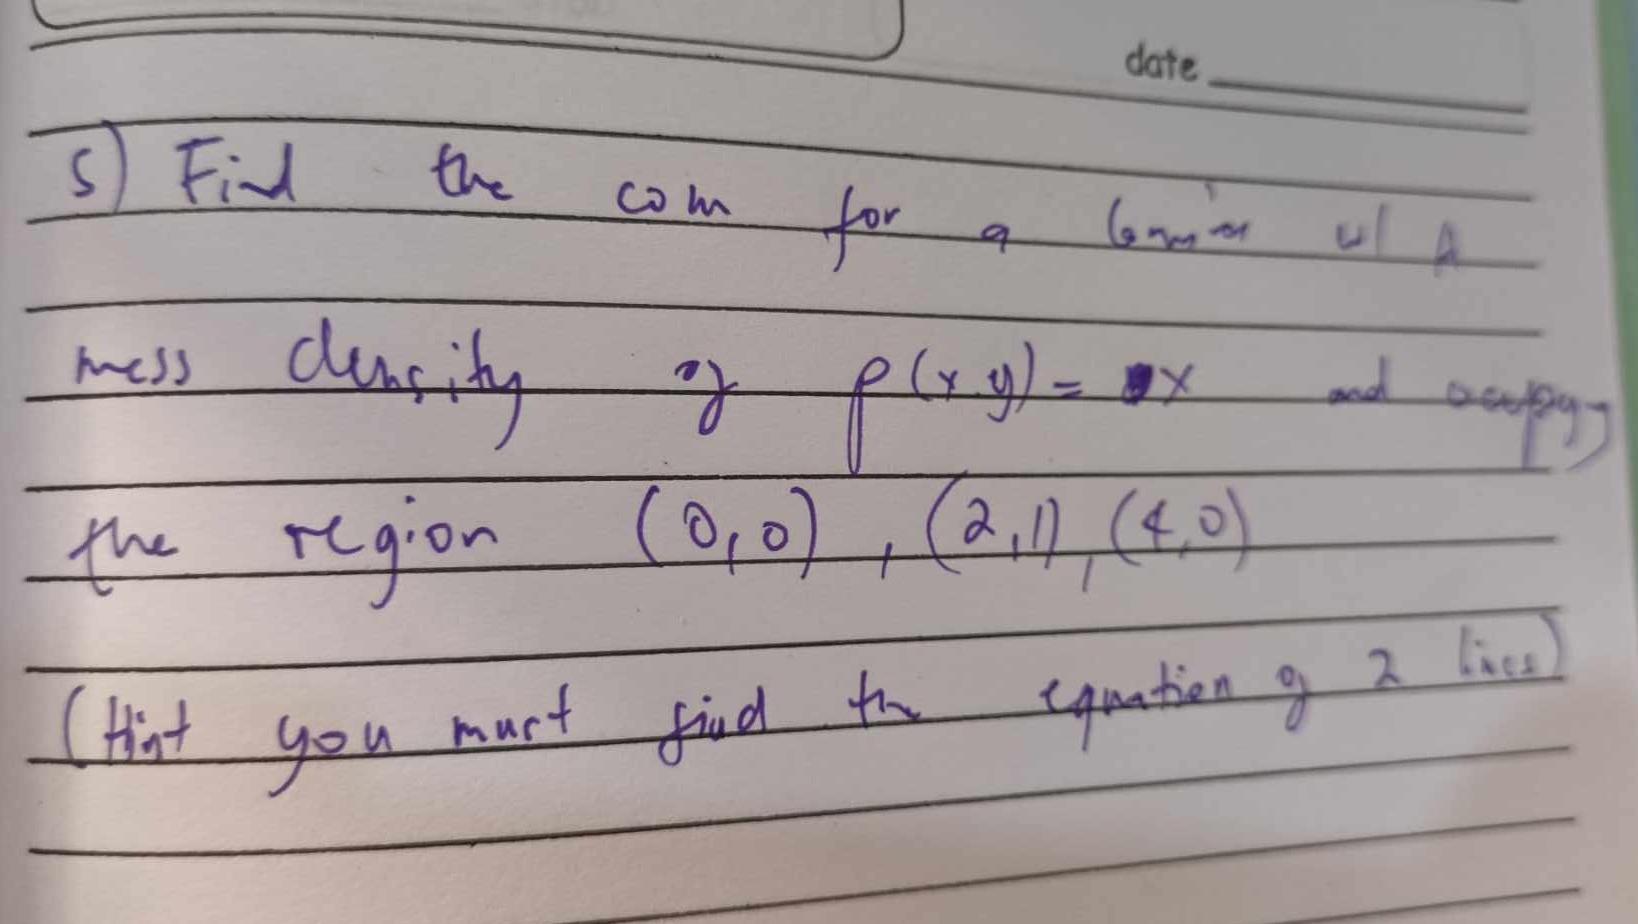 date
5) Find the com for a lamina w/ A
mess density of ρ(x,y) = x and occupy
the region (0,0), (2,1), (4,0)
(Hint you must find the equation of 2 lines)